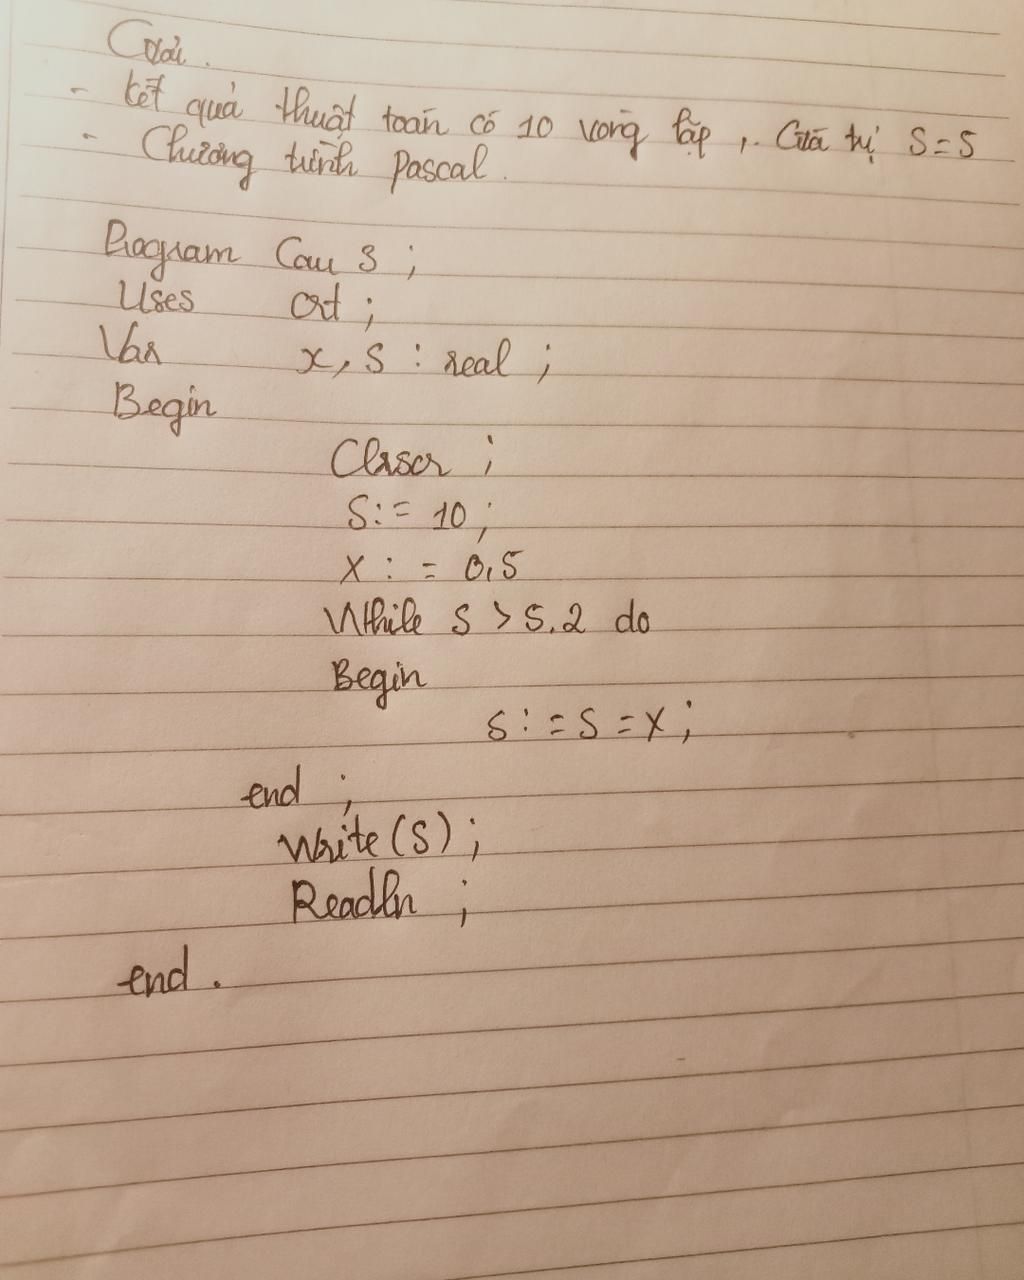 Giải.
- kết quả thuật toán có 10 vòng lặp, Giá trị S=5
- Chương trình pascal.
Program Cau 3 ;
Uses crt ;
Var x, S : real ;
Begin
Clrscr ;
S:= 10 ;
X : = 0,5
While S > 5.2 do
Begin
S : = S = X ;
end ;
Write (S) ;
Readln ;
end .